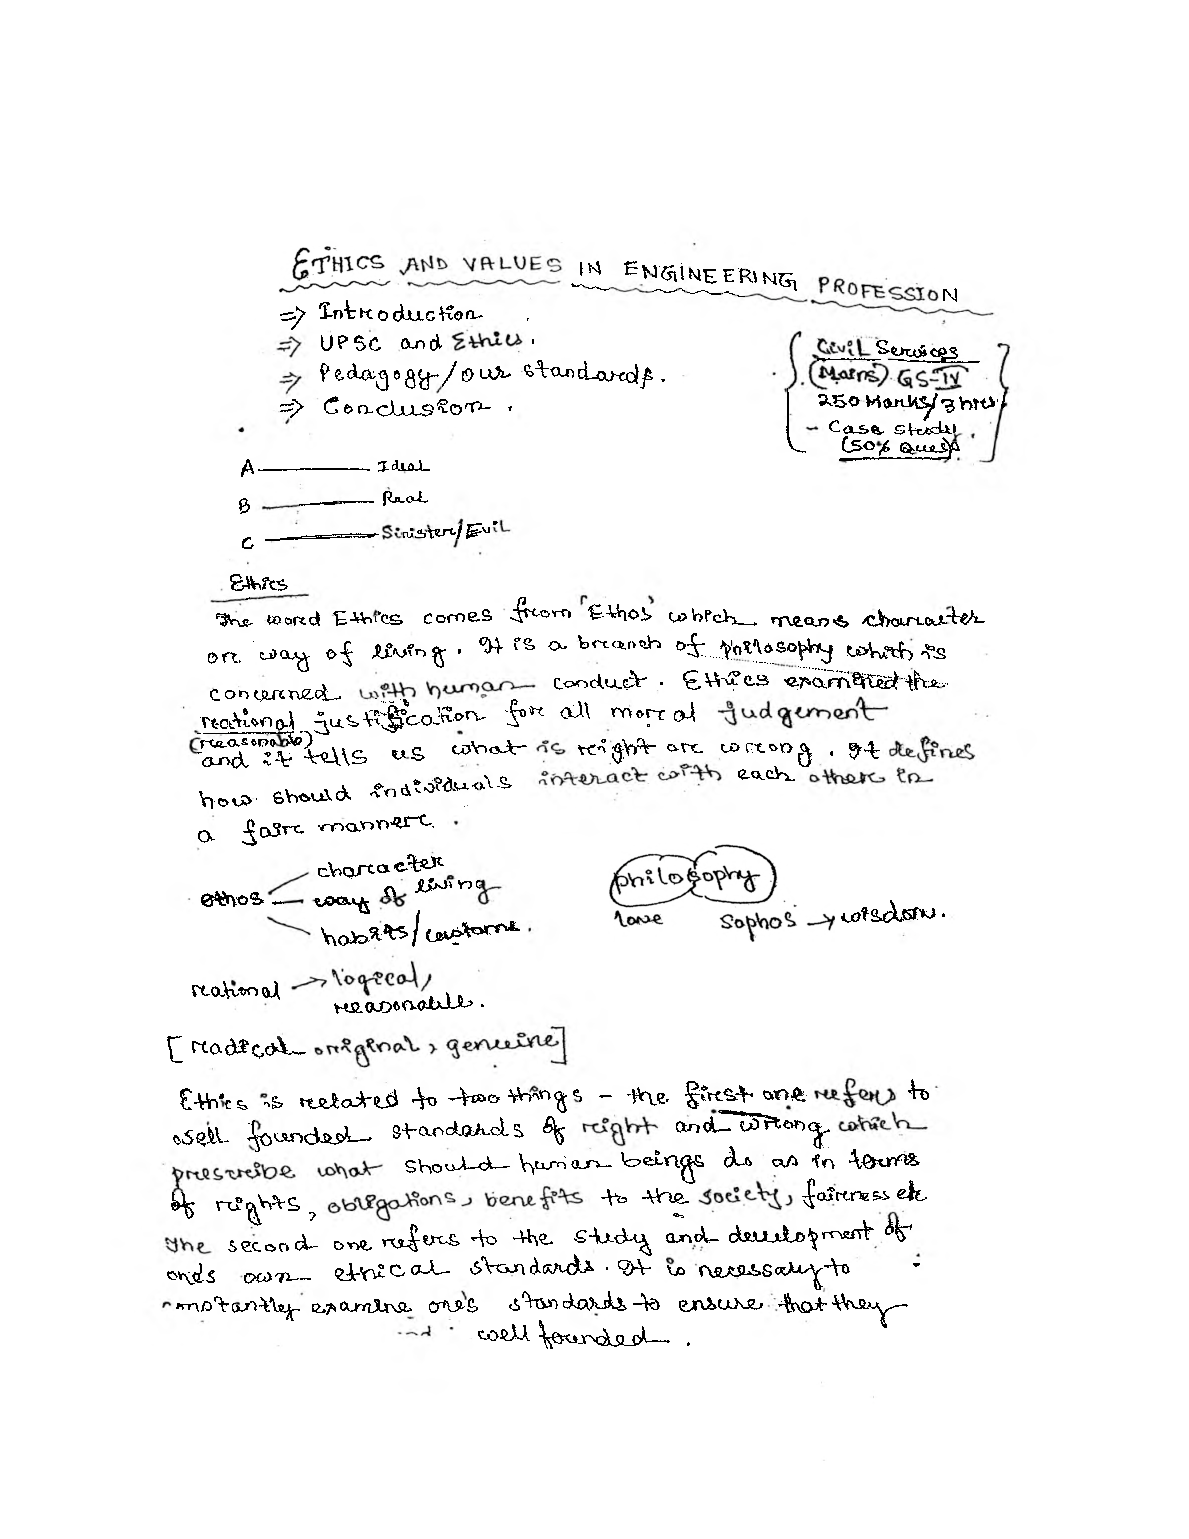 ETHICS AND VALUES IN ENGINEERING PROFESSION
⇒ Introduction
⇒ UPSC and Ethics.
⇒ Pedagogy/our standards.
⇒ Conclusion.
Civil Services
(Mains) GS-IV
250 Marks/3 hrs
- Case study.
(50% Ques)
A — Ideal
B — Real
C — Sinister/Evil
Ethics
The word Ethics comes from 'Ethos' which means character
or way of living. It is a branch of philosophy which is
concerned with human conduct. Ethics examined the
rational justification for all moral judgement
(reasonable)
and it tells us what is right or wrong. It defines
how should individuals interact with each other in
a fair manner.
ethos
character
way of living
habits/customs.
philosophy
love sophos → wisdom.
rational → logical,
reasonable.
[radical original, genuine]
Ethics is related to two things - the first one refers to
well founded standards of right and wrong which
prescribe what should human beings do as in terms
of rights, obligations, benefits to the society, fairness etc
The second one refers to the study and development of
one's own ethical standards. It is necessary to
constantly examine one's standards to ensure that they
well founded.